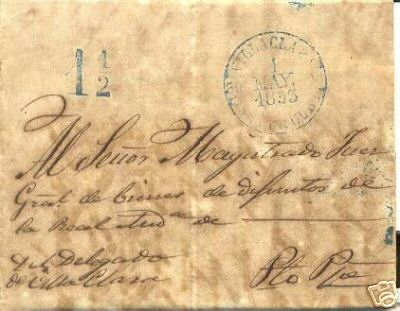 1 1/2
VILLACLARA
1
MAY.
1853
Al Señor Magistrado Juez
Gral. de bienes de difuntos de
la Real Aud.a de
Del Delegado
de Villa Clara
Pto Pe